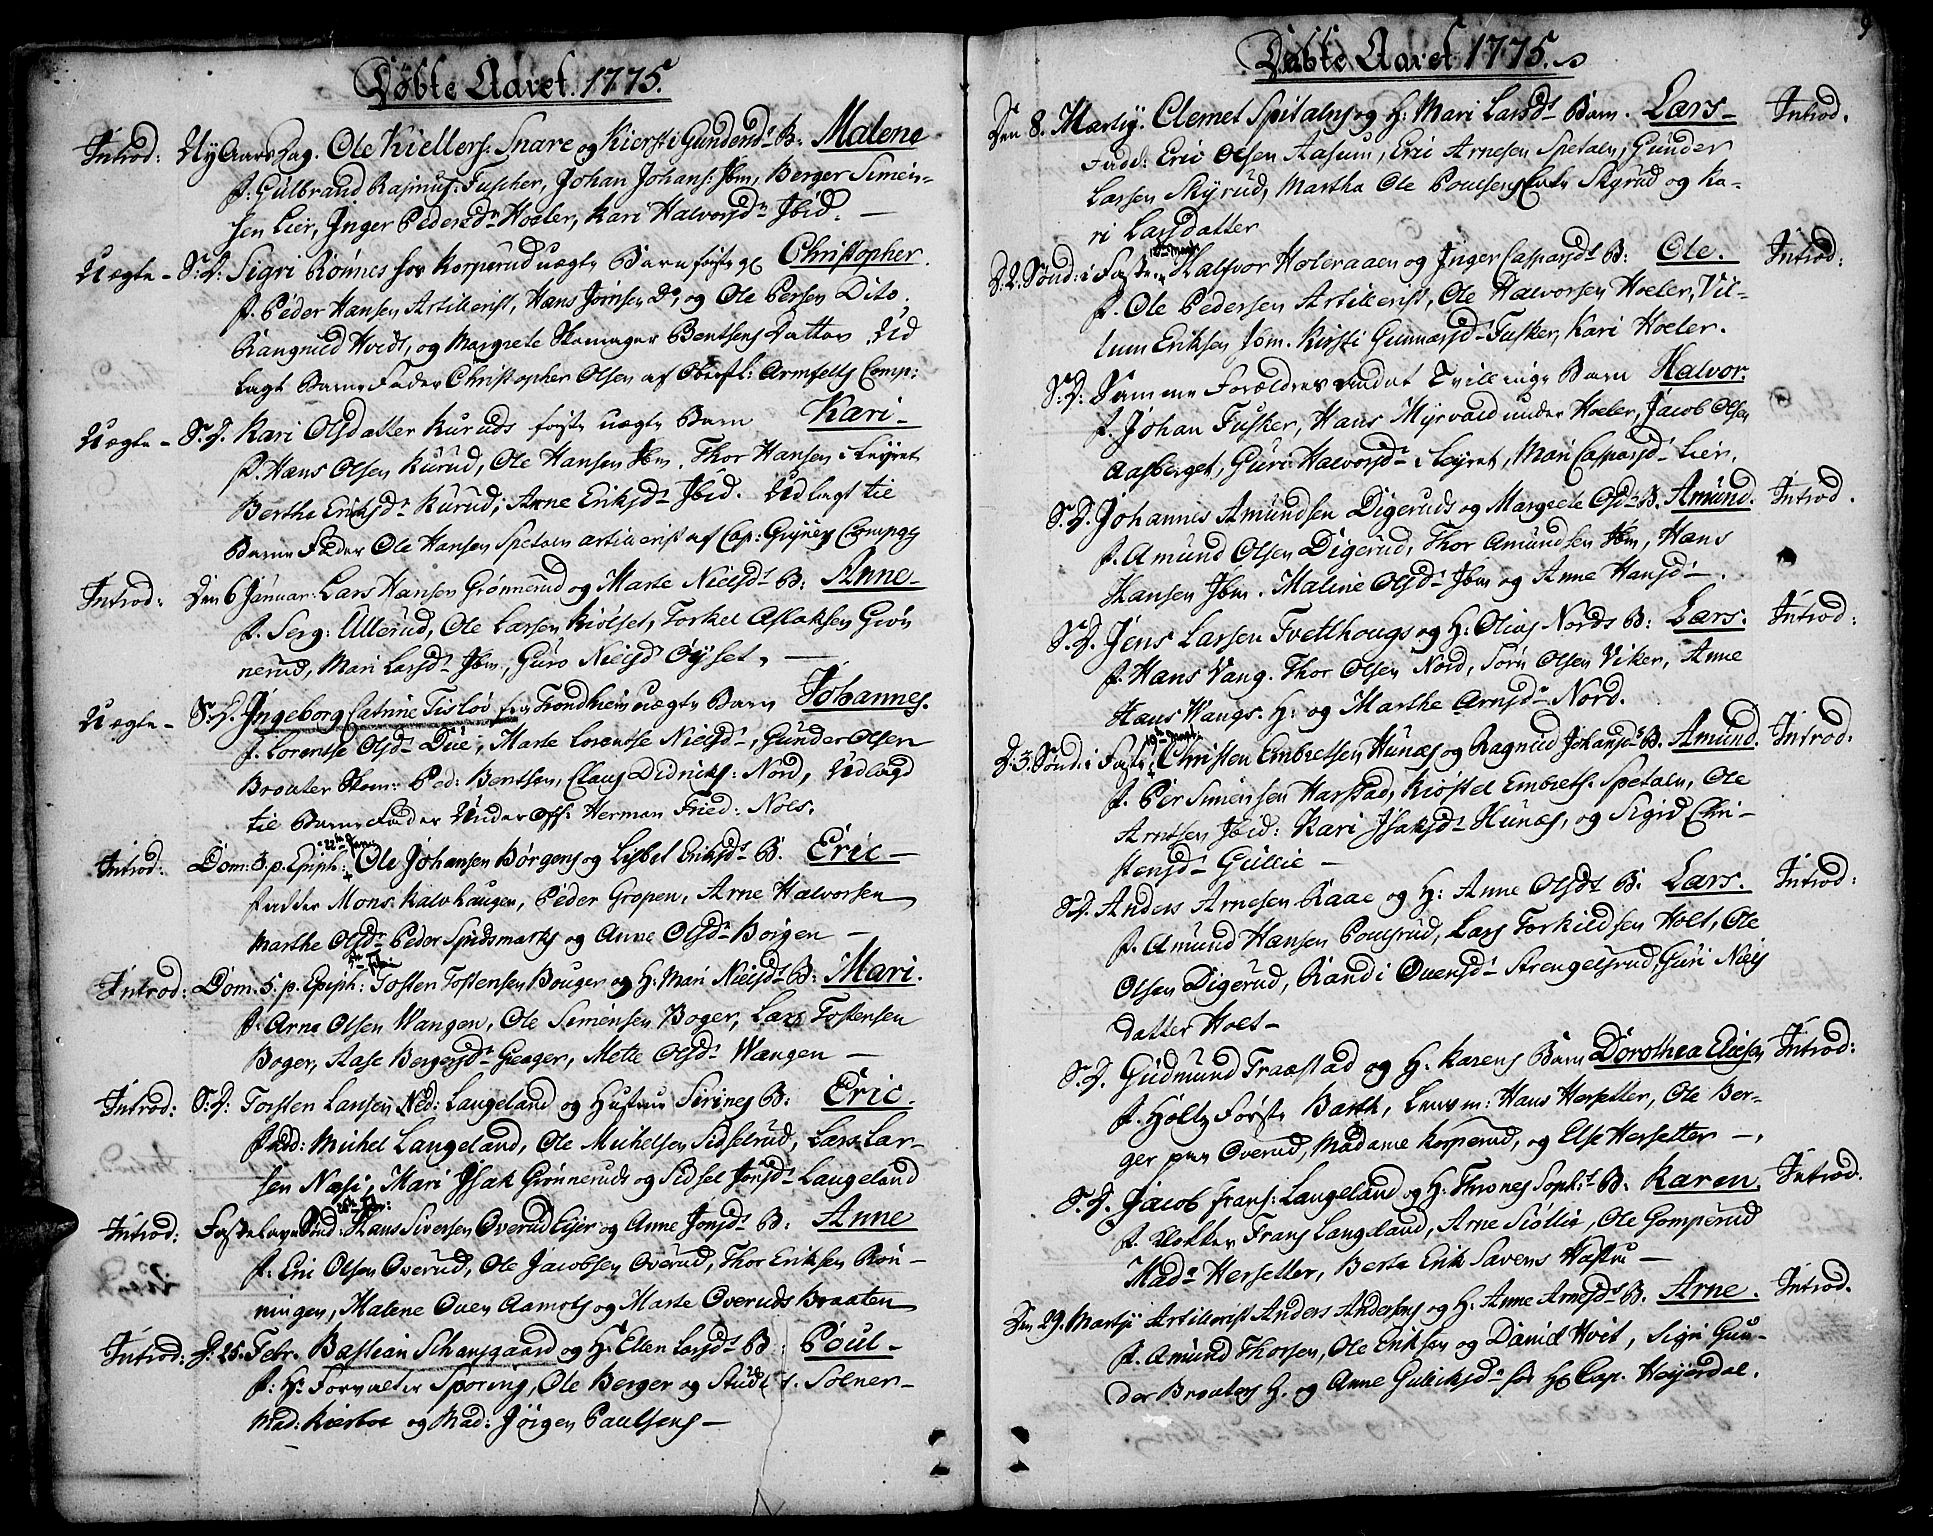 Døbte Aaret 1775.
Introd: NyAars Dag. Ole Kiellers: Snare og Kiersti Gundersd: B: Malene
f. Gulbrand Rasmus: Fuscher, Johan Johans: Ibm, Berger Simen-
sen Lier, Inger Pedersdr Hoeler, Kari Halvorsdr Ibid. —
Uægte - S: D: Sigri Rønnes for Korperud uægte Barn første Christopher.
f. Peder Hansen Artillerist, Hans Jørnsen Do, og Ole Persen Dito,
Rangnild Hvidt, og Margrete Skomager Bentsens Datter Ud
lagt Barne Fader Christopher Olsen af Oberstl: Armfelts Comp:
Uægte - S. D. Kari Olsdatter Kuruds første uægte Barn Kari -
f. Hans Olsen Kurud, Ole Hansen Ibm, Thor Hansen i Leyret
Berthe Eriksdr Kurud, Arne Eriksdr Ibid. Udlagt til
Barne Fader Ole Hansen Spetalen artillerist af Cap: Compag
Introd: Den 6 Januar: Lars Hansen Grønnerud og Marte Nielsdr B: Anne -
f. Serg: Ullerud, Ole Larsen Kiølset, Torkel Aslaksen Grøn
nerud, Mari Larsdr Ibm, Guro Nielsd Øyset, —
Uægte - S. D. Ingeborg Catrine Tisløv fra Trondheim uægte Barn Johannes.
f. Lorentse Olsdr Due, Marte Lorentse Nielsdr, Gunder Olsen
Braater Skom: Ped: Bentsen, Claus Didriks: Nord, Udlagd
til Barne Fader Under Off: Herman Fried: Nols.
22de Janu
Introd: Dom. 3. p. Epiph: Ole Johansen Børgens og Lisbet Eriksdr B. Eric -
fadder Mons Kalvhaugen, Peder Gropen, Arne Halvorsen
Marthe Olsdr Peder Spidsmarks og Anne Olsdr Borgen —
5te Febr:
Introd: Dom. 5. p. Epiph: Tosten Tostensen Bouger og H: Mari Nielsdr B: Mari.
f. Arne Olsen Wangen, Ole Simensen Boger, Lars Tostensen
Boger, Aase Bergersdr Geager, Mette Olsdr Wangen —
Introd: S: D: Torsten Larsen Ned: Langeland og Hustrue Sirines B: Eric.
Fad: Michel Langeland, Ole Michelsen Sidselrud, Lars Lar-
sen Næsi, Mari Isak Grønneruds og Sidsel Jonsdr Langeland
26de Febr:
Introd: Fastelavns Sønd: Hans Siversen Overud Eyer og Anne Jonsdr B: Anne
f. Eric Olsen Overud, Ole Jacobsen Overud, Thor Eriksen Røn-
ningen, Malene Ouen Aamots og Marte Overuds Braaten
Introd: D: 25. Febr. Bastian Schansgaard og H: Ellen Larsdr B: Poul -
f: Hr Forvalter Sporing, Ole Berger og Stud: S. Solner-
Mad: Kierboe og Mad: Jørgen Paulsens —
9
Døbte Aaret 1775.
Den 8. Martij. Clemet Spitalens og H: Mari Larsdr Barn. Lars - Introd.
Fadd: Eric Olsen Aasum, Eric Arnesen Spetalen, Gunder
Larsen Skyrud, Martha Ole Poulsens Skyrud og Ka-
ri Larsdatter
12te Marti
D. 2. Sønd: i Faste Halfvor Holeraaen og Inger Caspersdr B: Ole. Introd:
f. Ole Pedersen Artillerist, Ole Halvorsen Hoeler, Vil-
lum Eriksen Ibm. Kirsti Gunnarsdr Fusker, Kari Hoeler.
S: D: Samme Forældres andet Tvillinge Barn Halvor.
f. Johan Fusker, Hans Myrvold under Hoeler, Jacob Olsen
Aasberget, Guri Halvorsdr i Leyret, Mari Caspersdr Lier.
S. D. Johannes Amundsen Digeruds og Margrete Olsdr B. Amund. Introd.
f. Amund Olsen Digerud, Thor Amundsen Ibm, Hans
Hansen Ibm. Maline Olsdr Ibm og Anne Hansdr —.
S. D. Jens Larsen Tvetthougs og H: Olias Nords B: Lars. Introd:
f. Hans Vang. Thor Olsen Nord, Torn Olsen Viker, Anne
Hans Wangs. H: og Marthe Arnsdr Nord.
19de Marti
D. 3. Sønd: i Faste Christen Embretsen Hunæs og Ragnild Johansdr B. Amund. Introd:
f. Per Simensen Harstad, Kiøstel Embrets: Spetalen, Ole
Arnesen Ibid: Kari Isaksdr Hunæs, og Sigrid Chri-
stensdr Gullie —
S. D. Anders Arnesen Raae og H: Anne Olsdr B. Lars. Introd:
f. Amund Hansen Poulsrud, Lars Torkildsen Holt, Ole
Olsen Digerud, Randi Ouensdr Strengelsrud, Guri Niels
datter Holt -
S. D. Gudmund Traastad og H. Karens Barn Dorothea Elisen Introd:
f. Holtz Førster Barth, Lensm: Hans Hersetter, Ole Ber-
ger paa Overud, Madame Korperud, og Else Hersetter —,
S. D. Jacob Frans: Langeland og H. Thrones Sophr: B. Karen. Introd:
f. Klokker Frans Langeland, Arne Siøllie, Ole Gomperud
Made Hersetter, Berte Erik Savens Hustru —
Den 29. Martij Artillerist Anders Andersens og H: Anne Arnesdr B. Arne. Introd.
f. Amund Thorsen, Ole Eriksen og David Hvit, Sigri Gun-
der Braatens H. og Anne Guliksdr for Hr Cap. Heyerdal.